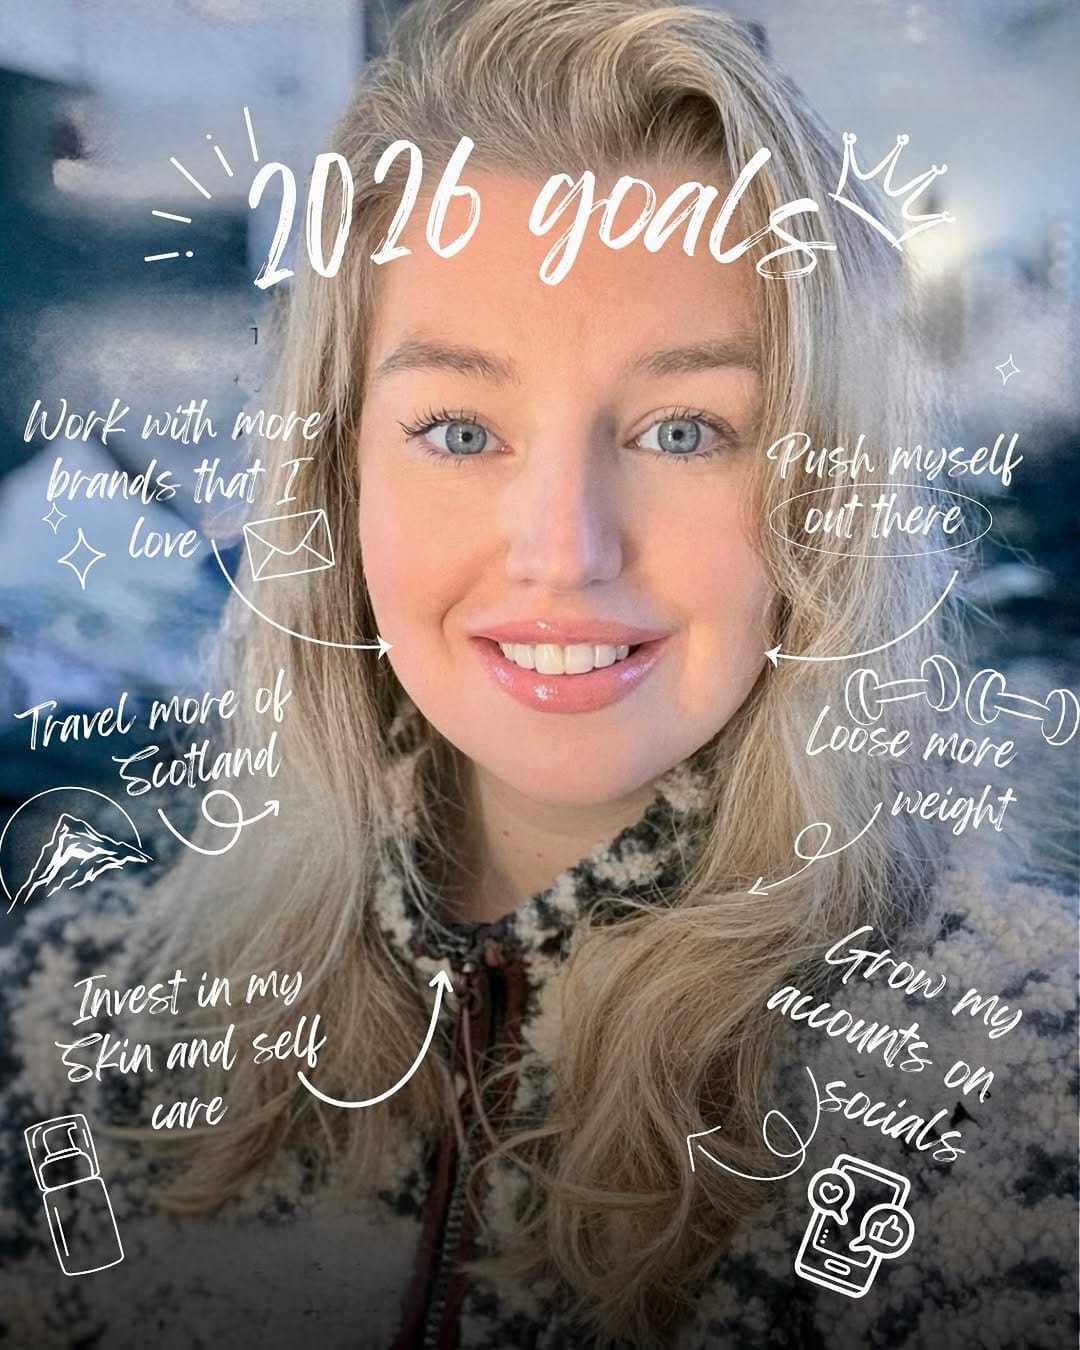 2026 goals
Work with more
brands that I
love
Push myself
out there
Travel more of
Scotland
Loose more
weight
Invest in my
Skin and self
care
Grow my
accounts on
socials